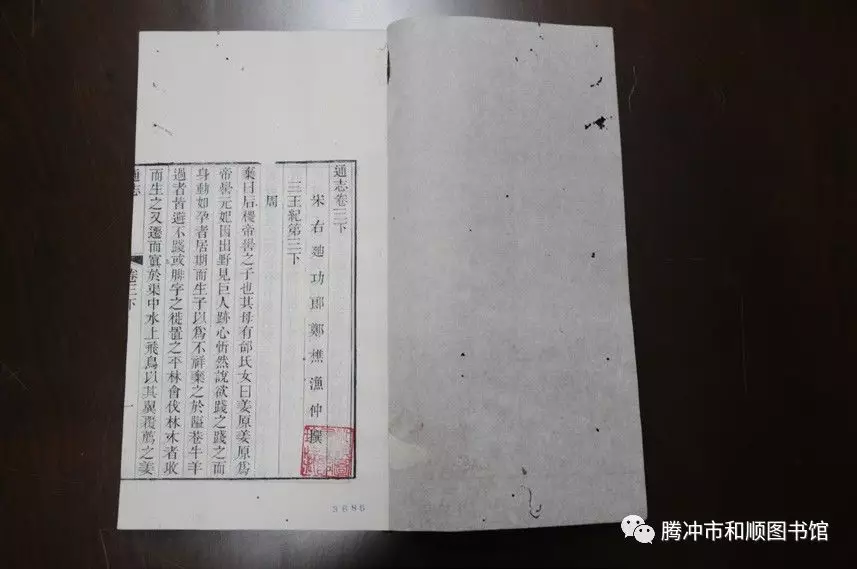 通志卷三下
宋右迪功郎鄭樵漁仲撰
三王紀第三下
周
棄曰后稷帝嚳之子也其母有邰氏女曰姜原姜原爲
帝嚳元妃因出野見巨人跡心忻然說欲踐之踐之而
身動如孕者居期而生子以爲不祥棄之於隘巷牛羊
過者皆避不踐或腓字之徙置之平林會伐林木者收
而生之又遷而寘於渠中水上飛鳥以其翼覆薦之姜
通志
卷三下
一
3686
腾冲市和顺图书馆